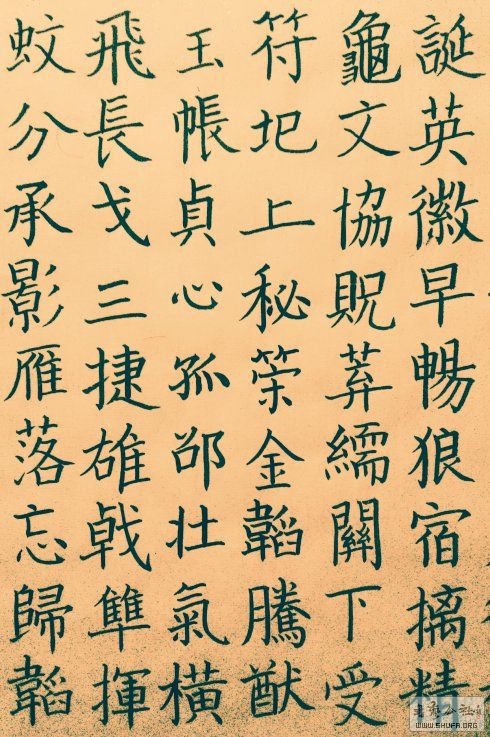 誕英徽早暢狼宿摛精
龜文協貺棄繻關下受
符圯上秘策金韜騰猷
玉帳貞心孤邵壯氣橫
飛長戈三捷雄戟雙揮
蚊分承影雁落忘歸韜
WWW.SHUFA.ORG